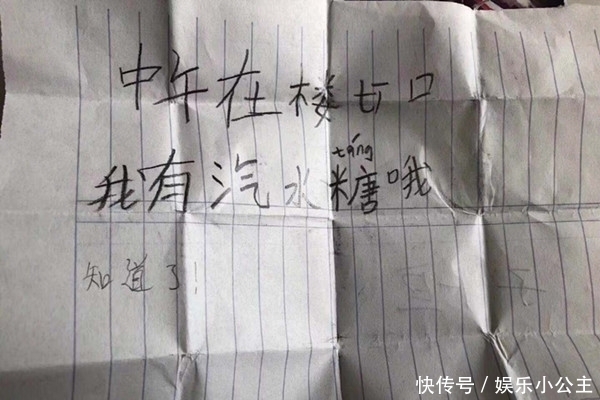 中午在楼七口
táng
我有汽水糖哦
知道了!
快传号/娱乐小公主